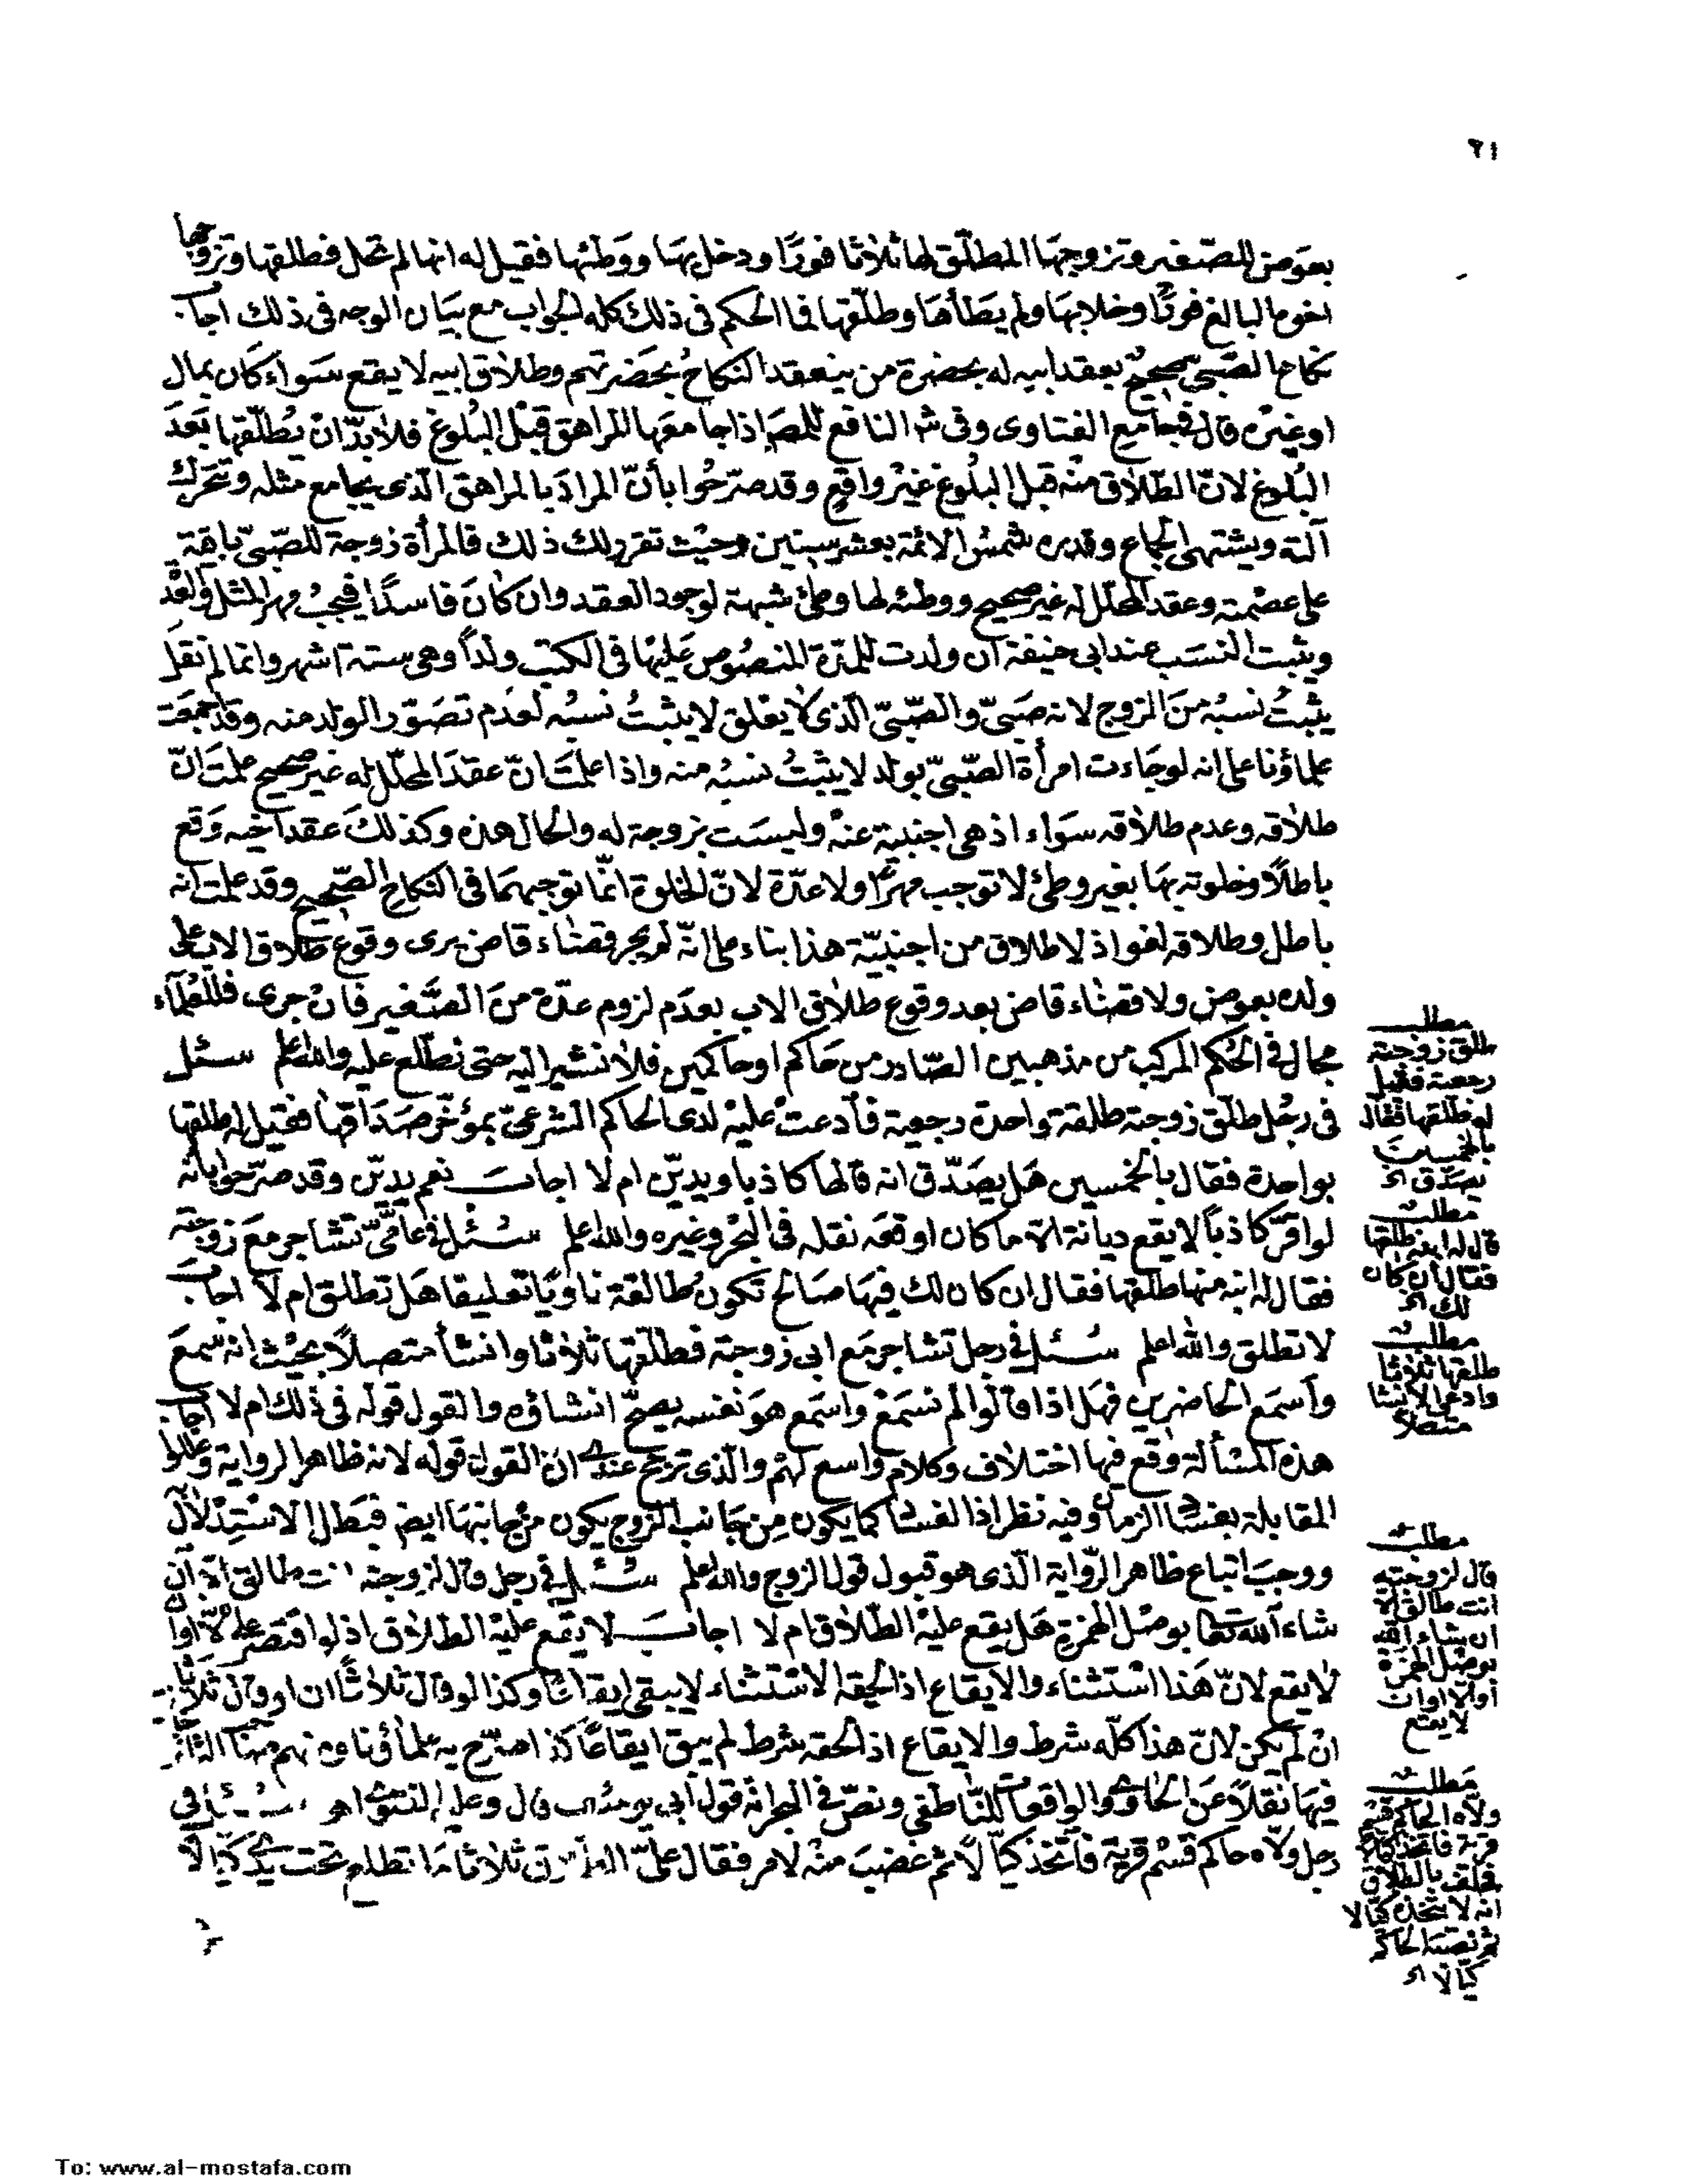 ٦١
بعوض للصغير وتزوجها المطلق لها ثلاثا فورا ودخل بها ووطئها فقيل له انها لم تحل فطلقها وتزوجها
اخوه البالغ فورا وخلا بها ولم يطأها وطلقها فما الحكم في ذلك كله الجواب مع بيان الوجه في ذلك اجاب
نكاح الصبي صحيح بعقد ابيه له بحضرة من ينعقد النكاح بحضرتهم وطلاق ابيه لا يقع سواء كان بمال
او غيره قال في جامع الفتاوى وفي شرا النافع للمص اذا جامعها المراهق قبل البلوغ فلا بد ان يطلقها بعد
البلوغ لان الطلاق منه قبل البلوغ غير واقع وقد صرحوا بأن المراد بالمراهق الذى يجامع مثله وتتحرك
آلته ويشتهى الجماع وقدره شمس الائمة بعشر سنين وحيث تقرر لك ذلك فالمرأة زوجة للصبي باقية
على عصمته وعقد المحلل له غير صحيح ووطئه لها وطئ شبهة لوجود العقد وان كان فاسدا فيجب مهر المثل والعدة
ويثبت النسب عند ابي حنيفة ان ولدت للمدة المنصوص عليها في الكتب ولدا وهى ستة اشهر وانما لم نقل
يثبت نسبه من الزوج لانه صبي والصبي الذى لا يعلق لا يثبت نسبه لعدم تصور الولد منه وقد اجمعت
علماؤنا على انه لو جاءت امرأة الصبي بولد لا يثبت نسبه منه واذا علمت ان عقد المحلل له غير صحيح علمت ان
طلاقه وعدم طلاقه سواء اذ هى اجنبية عنه وليست بزوجة له والحال هذه وكذلك عقد اخيه وقع
باطلا وخلوته بها بغير وطئ لا توجب مهرا ولا عدة لان الخلوة انما توجبهما في النكاح الصحيح وقد علمت انه
باطل وطلاقه لغو اذ لا طلاق من اجنبية هذا بناء على انه لم يجر قضاء قاض يرى وقوع طلاق الاب على
ولده بعوض ولا قضاء قاض بعد وقوع طلاق الاب بعدم لزوم عدة من الصغير فان جرى فللعلماء
مجال في الحكم المركب من مذهبين الصادر من حاكم او حاكمين فلا نشير اليه حتى نطلع عليه والله اعلم سئل
في رجل طلق زوجته طلقة واحدة رجعية فادعت عليه لدى الحاكم الشرعي بمؤخر صداقها فقيل له طلقها
بواحدة فقال بالخمسين هل يصدق انه قالها كاذبا ويدين ام لا اجاب نعم يدين وقد صرحوا بانه
لو اقر كاذبا لا يقع ديانة الا ما كان اوقعه نقله في البحر وغيره والله اعلم سئل في عامي تشاجر مع زوجته
فقال له ابنه منها طلقها فقال ان كان لك فيها صالح تكون طالقة ناويا تعليقا هل تطلق ام لا اجاب
لا تطلق والله اعلم سئل في رجل تشاجر مع ابي زوجته فطلقها ثلاثا وانشأ متصلا بحيث انه سمع
وأسمع الحاضرين فهل اذا قالوا لم نسمع واسمع هو نفسه يصح انشاؤه والقول قوله في ذلك ام لا اجاب
هذه المسألة وقع فيها اختلاف وكلام واسع لهم والذى ترجح عندى ان القول قوله لانه ظاهر الرواية وعللوا
المقابلة بفساد الزمان وفيه نظر اذ الفساد كما يكون من جانب الزوج يكون من جانبها ايضا فبطل الاستدلال
ووجب اتباع ظاهر الرواية الذى هو قبول قول الزوج والله اعلم سئل في رجل قال لزوجته انت طالق الا ان
شاء الله تعالى بوصل الهمزة هل يقع عليه الطلاق ام لا اجاب لا يقع عليه الطلاق اذ لو اقتصر على الا او ا
لا يقع لان هذا استثناء والايقاع اذا لحقه الاستثناء لا يبقى ايقاعا وكذا لو قال ثلاثا ان او قال ثلاثا
ان لم يكن لان هذا كله شرط والايقاع اذ الحقه شرط لم يبق ايقاعا كذا صرح به علماؤنا
فيها نقلا عن الحاوى والواقعات للناطفي ونص في البحر انه قول ابي يوسف قال وعليه الفتوى اهـ سئل في
رجل ولاه حاكم قسم قرية فاتخذ كيالا ثم غضب منه لامر فقال على الطلاق ثلاثا ما تطلع تحت يدى كيالا
مطلب
طلق زوجته
رجعية فقيل
له طلقها فقال
بالخمسين
يصدق الخ
مطلب
قال له ابنه طلقها
فقال ان كان
لك الخ
مطلب
طلقها ثلاثا
وادعى الانشا
متصلا
مطلب
قال لزوجته
انت طالق الا
ان شاء الله
بوصل الهمزة
او الا او ان
لا يقع
مطلب
ولاه الحاكم قسم
قرية فاتخذ كيالا
فحلف بالطلاق
انه لا يتخذه كيالا
ثم نصبه الحاكم
كيالا الخ
To: www.al-mostafa.com